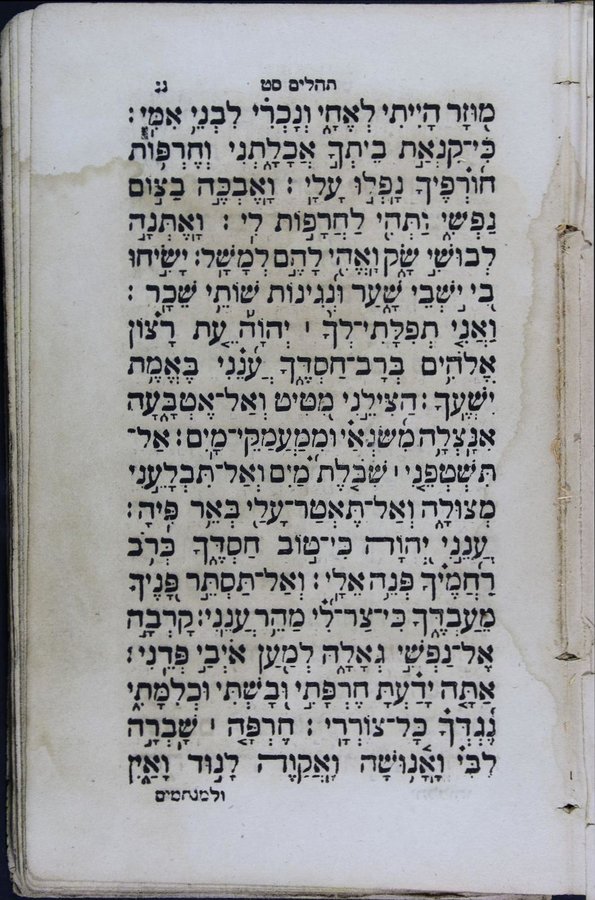 תהלים סט נ:
מוּזָר הָיִיתִי לְאֶחָי וְנָכְרִי לִבְנֵי אִמִּי׃
כִּי־קִנְאַת בֵּיתְךָ אֲכָלָתְנִי וְחֶרְפּוֹת
חוֹרְפֶיךָ נָפְלוּ עָלָי׃ וָאֶבְכֶּה בַצּוֹם
נַפְשִׁי וַתְּהִי לַחֲרָפוֹת לִי׃ וָאֶתְּנָה
לְבוּשִׁי שָׂק וָאֱהִי לָהֶם לְמָשָׁל׃ יָשִׂיחוּ
בִי יֹשְׁבֵי שָׁעַר וּנְגִינוֹת שׁוֹתֵי שֵׁכָר׃
וַאֲנִי תְפִלָּתִי־לְךָ ׀ יְהוָה עֵת רָצוֹן
אֱלֹהִים בְּרָב־חַסְדֶּךָ עֲנֵנִי בֶּאֱמֶת
יִשְׁעֶךָ׃ הַצִּילֵנִי מִטִּיט וְאַל־אֶטְבָּעָה
אִנָּצְלָה מִשֹּׂנְאַי וּמִמַּעֲמַקֵּי־מָיִם׃ אַל־
תִּשְׁטְפֵנִי ׀ שִׁבֹּלֶת מַיִם וְאַל־תִּבְלָעֵנִי
מְצוּלָה וְאַל־תֶּאְטַר־עָלַי בְּאֵר פִּיהָ׃
עֲנֵנִי יְהוָה כִּי־טוֹב חַסְדֶּךָ כְּרֹב
רַחֲמֶיךָ פְּנֵה אֵלָי׃ וְאַל־תַּסְתֵּר פָּנֶיךָ
מֵעַבְדֶּךָ כִּי־צַר־לִי מַהֵר עֲנֵנִי׃ קָרְבָה
אֶל־נַפְשִׁי גְאָלָהּ לְמַעַן אֹיְבַי פְּדֵנִי׃
אַתָּה יָדַעְתָּ חֶרְפָּתִי וּבָשְׁתִּי וּכְלִמָּתִי
נֶגְדְּךָ כָּל־צוֹרְרָי׃ חֶרְפָּה ׀ שָׁבְרָה
לִבִּי וָאָנוּשָׁה וָאֲקַוֶּה לָנוּד וָאַיִן
ולמנחמים